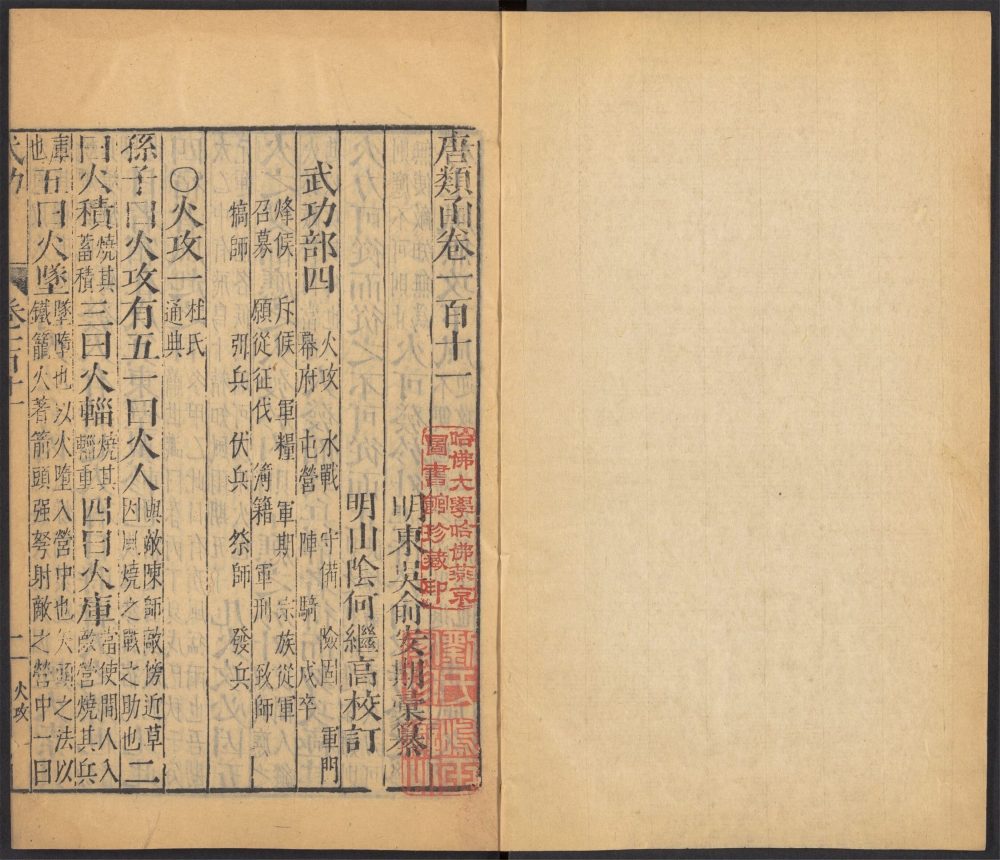 唐類函卷一百十一
明東吳俞安期彙纂
明山陰何繼高校訂
武功部四
火攻 水戰 守備 險固 軍門
幕府 屯營 陣 騎 戍卒
烽候 斥候 軍糧 軍期 宗族從軍
召募 願從征伐 簿籍 軍刑 致師
犒師 弭兵 伏兵 祭師 發兵
○火攻一
杜氏
通典
孫子曰火攻有五一曰火人
與敵陳師敵傍近草
因風燒之戰之助也
二
曰火積
燒其
蓄積
三曰火輜
燒其
輜重
四曰火庫
當使間人入
敵營燒其兵
庫
也
五曰火墜
墜墮也以火墮入營中也矢頭之法以
鐵籠火著箭頭强弩射敵之營中一曰
武功
卷一百十一
一
火攻
哈佛大學哈佛燕京
圖書館珍藏印